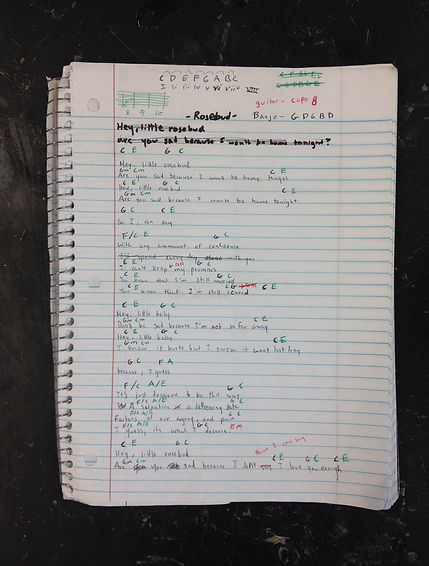 C D E F G A B C
I ii iii IV V vi vii VIII
guitar - capo 8
8 9 10
-Rosebud-
Banjo - G D G B D
Hey, little rosebud
are you sad because I won't be home tonight?
C E G C
Hey, little rosebud
Gm Cm C E
Are you sad because I wont be home tonight
C E G C
Hey, little rosebud
Gm Cm C E
Are you sad because I wont be home tonight
G C C E
So I, can say
F/C E G C
With any ammount of confidence
I'll spend every day alone with you
C E all G C
I can't keep my promises
C E G C
know that I'm still worried
C G
know that I'm still scared
C E G C
Hey, little baby
Gm Cm C E
be sad because I'm not so far away
C E G C
Hey, little baby
Gm Cm C E
I know it hurts but I swear it wont last long
G C F A
because, I guess
F/C A/E G C
It's just designed to be this way
F/C A/E G C
salvation a
F/C A/E G C
Factors of our agony and pain
F/C A/E G C Em
I guess, its what I deserve
C E G C
Hey, little rosebud
think I can say
Gm Cm C E G C C E
Are you sad because I don't I love you enough